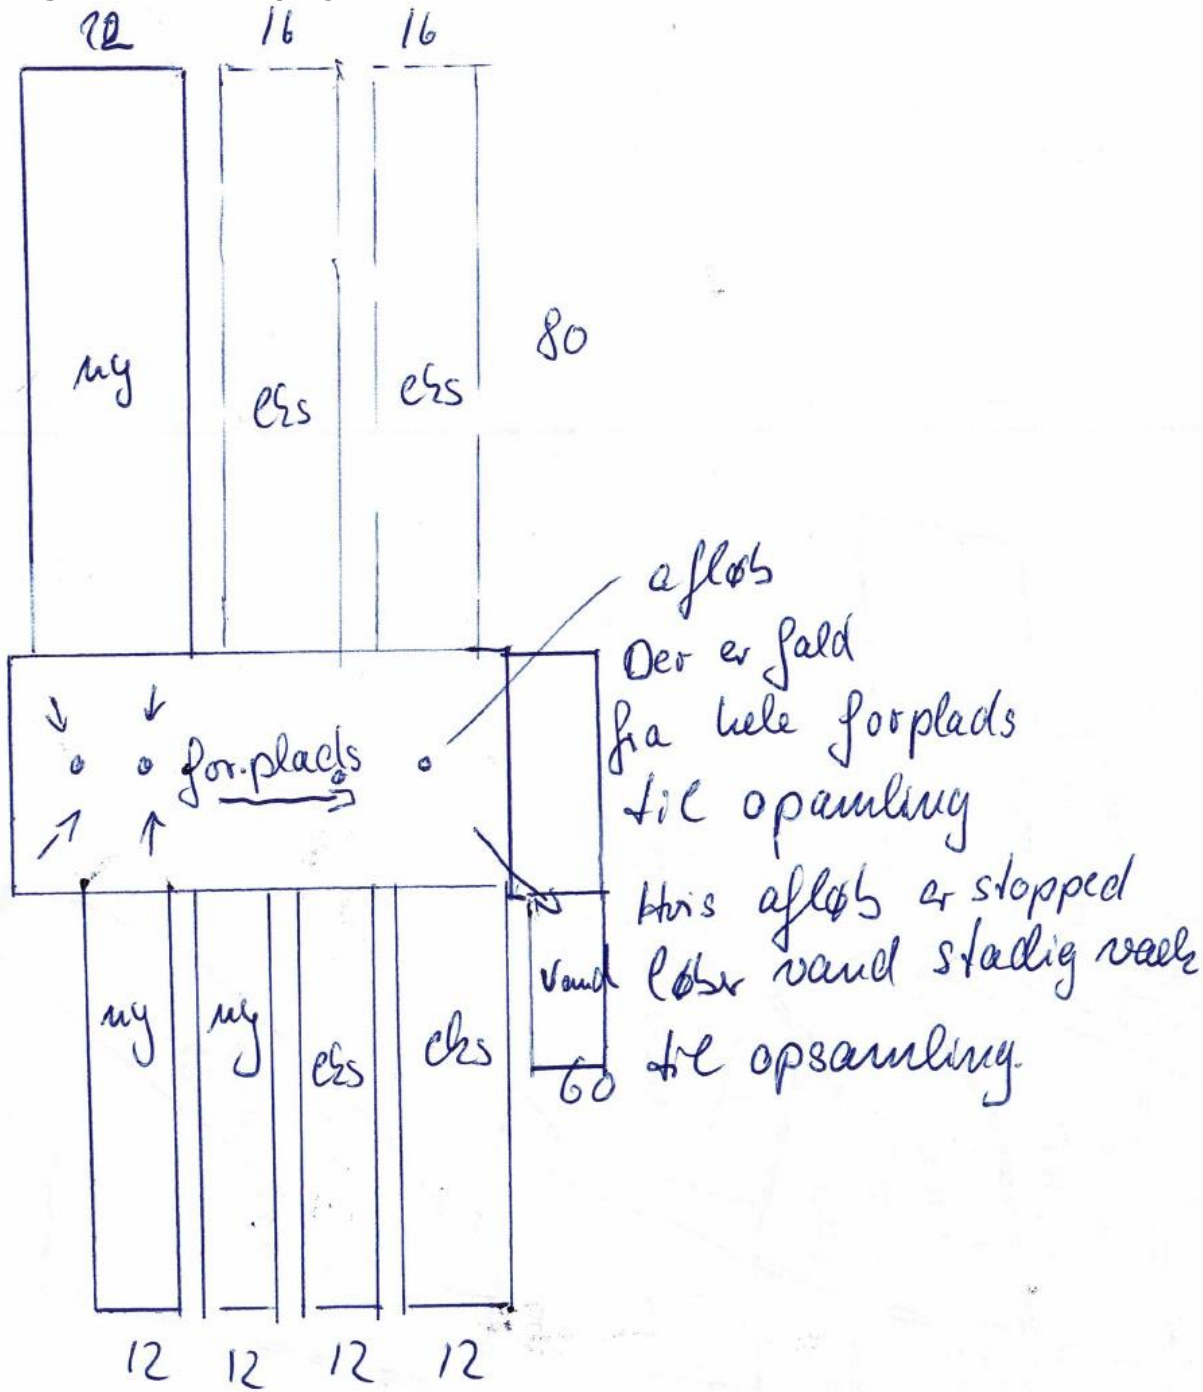 22 16 16
80
ny eks eks
afløb
Der er fald
fra hele forplads
til opamling
Hvis afløb er stopped
løber vand stadig væk
til opsamling.
for.plads
Vand
60
ny ny eks eks
12 12 12 12